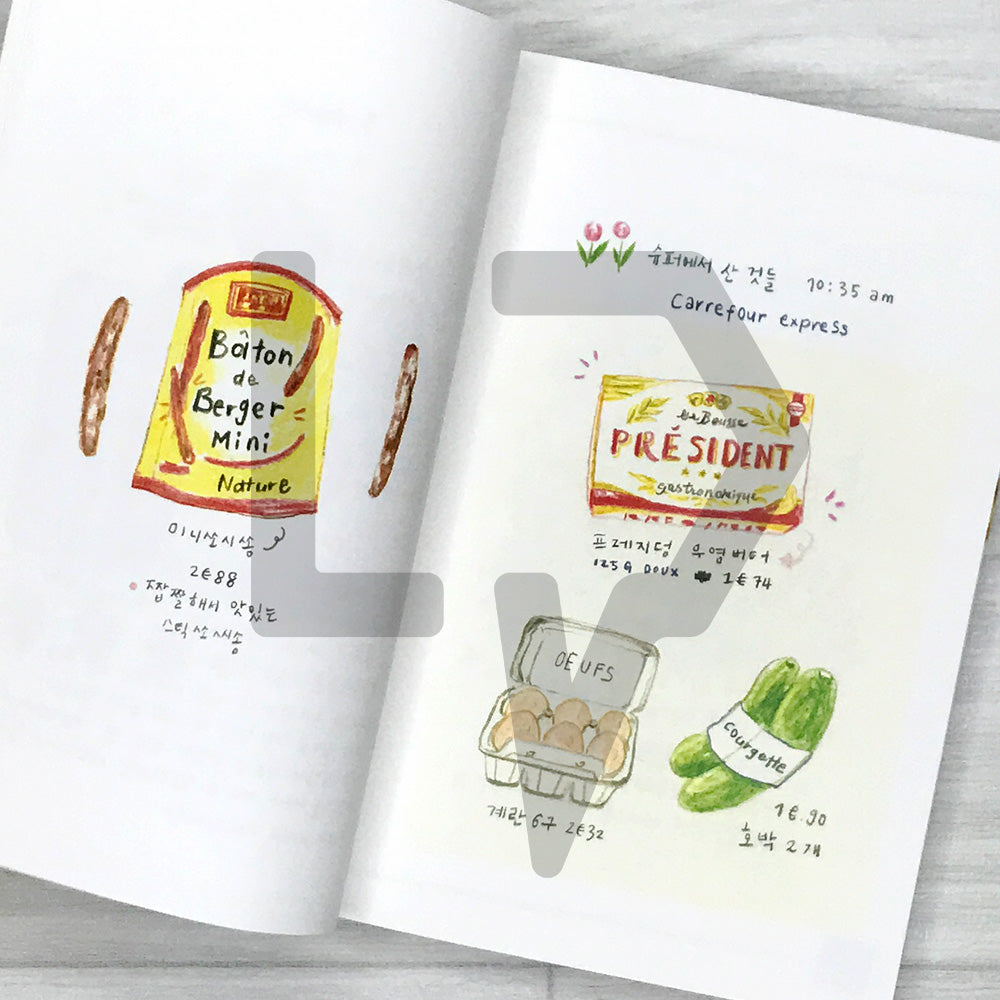 Bâton
de
Berger
Mini
Nature
미니쏘시쏭
2€88
짭짤해서 맛있는
스틱 쏘시송
슈퍼에서 산 것들 10:35 am
Carrefour express
PRÉSIDENT
gastronomique
프레지덩 우염버터
125G DOUX 1€74
OEUFS
계란 6구 2€32
courgette
1€.90
호박 2개